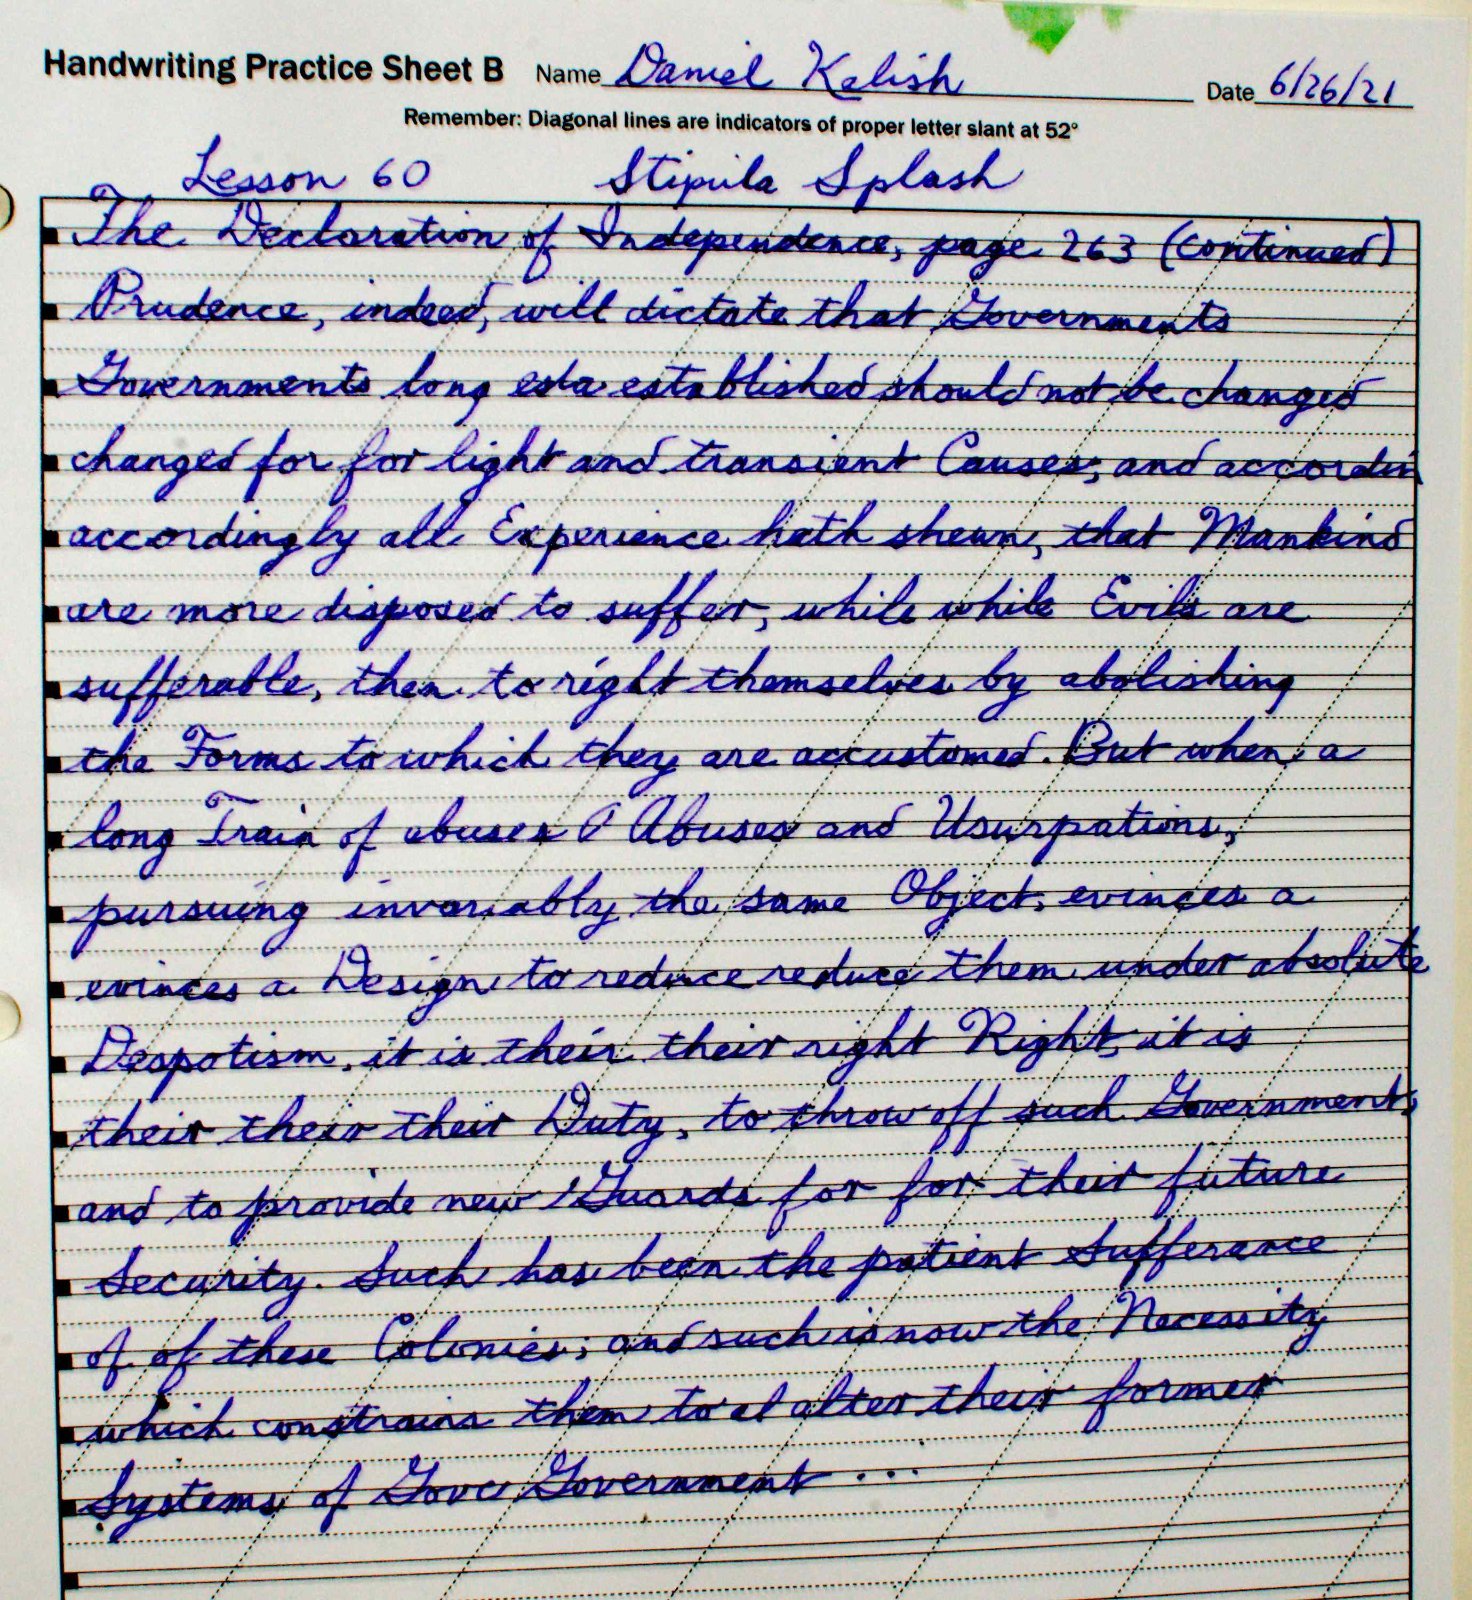 Handwriting Practice Sheet B Name Daniel Kalish Date 6/26/21
Remember: Diagonal lines are indicators of proper letter slant at 52°
Lesson 60 Stipula Splash
The Declaration of Independence, page 263 (continued)
Prudence, indeed, will dictate that Governments
Governments long esta established should not be changed
changed for for light and transient Causes; and accordin
accordingly all Experience hath shewn, that Mankind
are more disposed to suffer, while while Evils are
sufferable, than to right themselves by abolishing
the Forms to which they are accustomed. But when a
long Train of abuses A Abuses and Usurpations,
pursuing invariably the same Object, evinces a
evinces a Design to reduce reduce them under absolute
Despotism, it is their their right Right, it is
their their their Duty, to throw off such Government,
and to provide new Guards for for their future
Security. Such has been the patient Sufferance
of of these Colonies; and such is now the Necessity
which constrains them to al alter their former
Systems of Gove Government ...